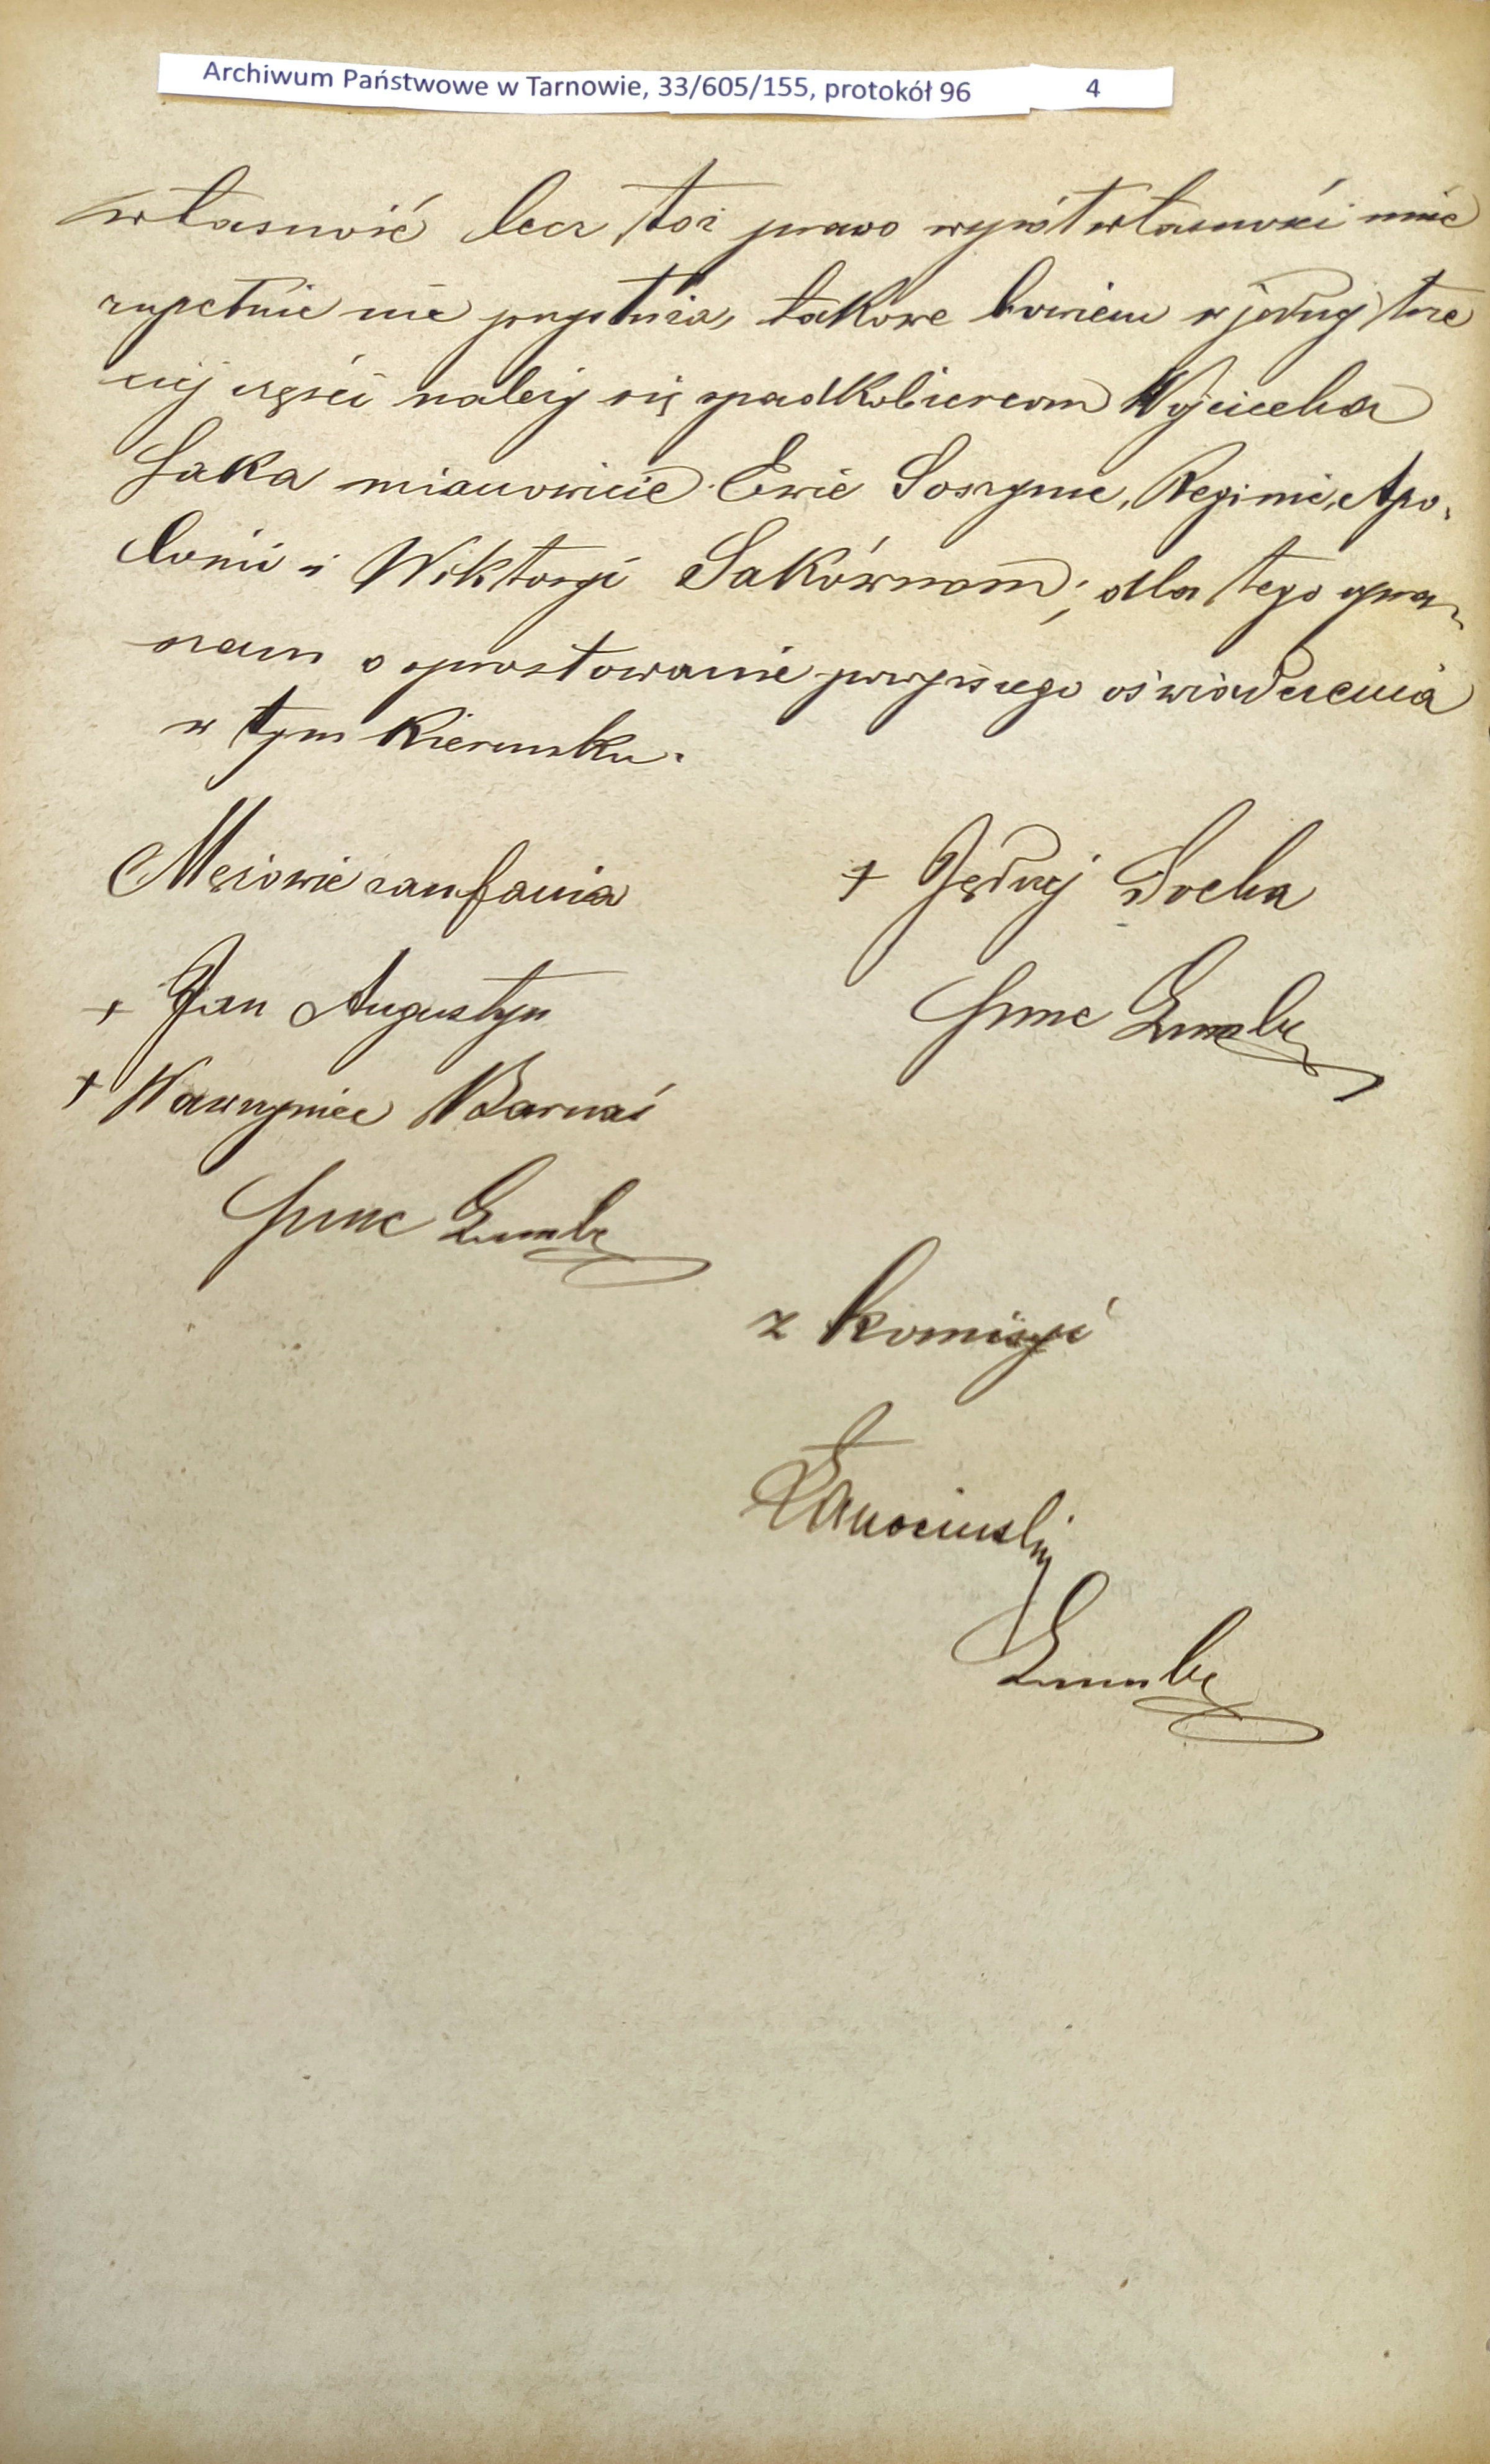 Archiwum Państwowe w Tarnowie, 33/605/155, protokół 96 4
własność lecz toż prawo współwłasności mnie
zupełnie nie przysłuża, takowe bowiem w jednej trze
ciej części należy się spadkobiercom Wojciecha
Saka mianowicie Ewie Soszynie, Reginie, Apo-
lonii i Wiktoryi Sakównom; dla tego upra-
szam o sprostowanie powyższego oświadczenia
w tym kierunku.
Mężowie zaufania
+ Jędrzej Socha
+ Jan Augustyn
+ Wawrzyniec Barnaś
z Komisyi